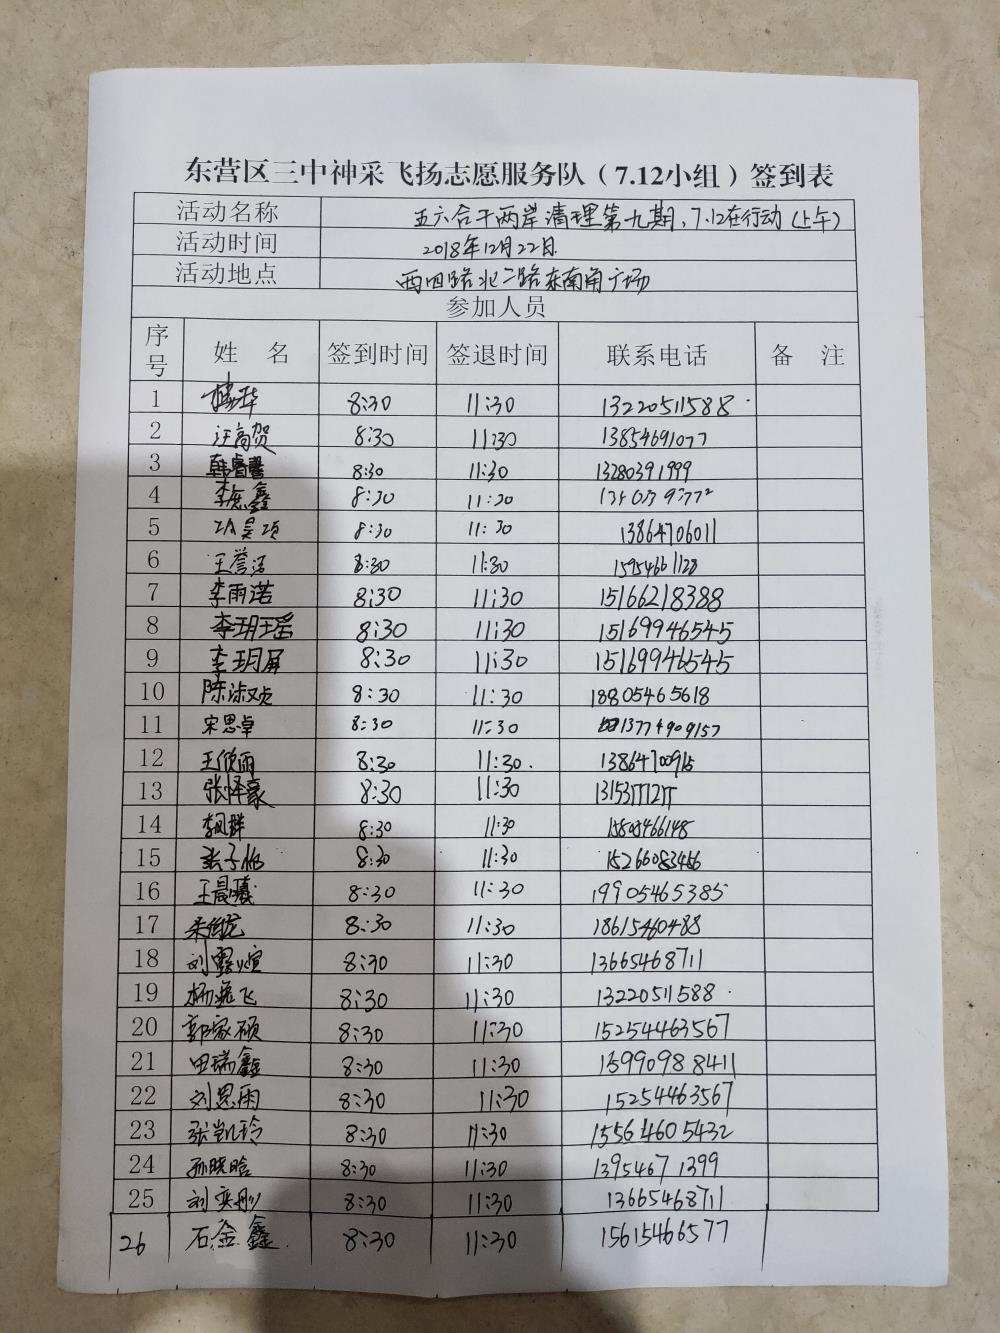 东营区三中神采飞扬志愿服务队（7.12小组）签到表
活动名称 五六合干两岸清理第九期，7.12在行动（上午）
活动时间 2018年12月22日.
活动地点 西四路北二路东南角广场
参加人员
序号 姓 名 签到时间 签退时间 联系电话 备 注
1 杨华 8:30 11:30 13220511588
2 汪高贺 8:30 11:30 13854691077
3 韩睿馨 8:30 11:30 13280391999
4 8:30 11:30
5 8:30 11:30 13864706011
6 王誉洁 8:30 11:30 15954661128
7 李雨诺 8:30 11:30 15166218388
8 李玥瑶 8:30 11:30 15169946545
9 李玥屏 8:30 11:30 15169946545
10 陈淑贞 8:30 11:30 18805465618
11 宋思卓 8:30 11:30 13774909157
12 8:30 11:30. 13864700915
13 张怿豪 8:30 11:30
14 李凤群 8:30 11:30
15 8:30 11:30 15266083456
16 王晨曦 8:30 11:30 19905465385
17 8:30 11:30 18615460488
18 8:30 11:30 13665468711
19 杨逸飞 8:30 11:30 13220511588
20 郭家硕 8:30 11:30 15254463567
21 田瑞鑫 8:30 11:30 13990988411
22 刘思雨 8:30 11:30 15254463567
23 张凯玲 8:30 11:30 155614605432
24 孙晓晗 8:30 11:30 1395467 1399
25 刘奕彤 8:30 11:30 13665468711
26 石金鑫 8:30 11:30 15615466577